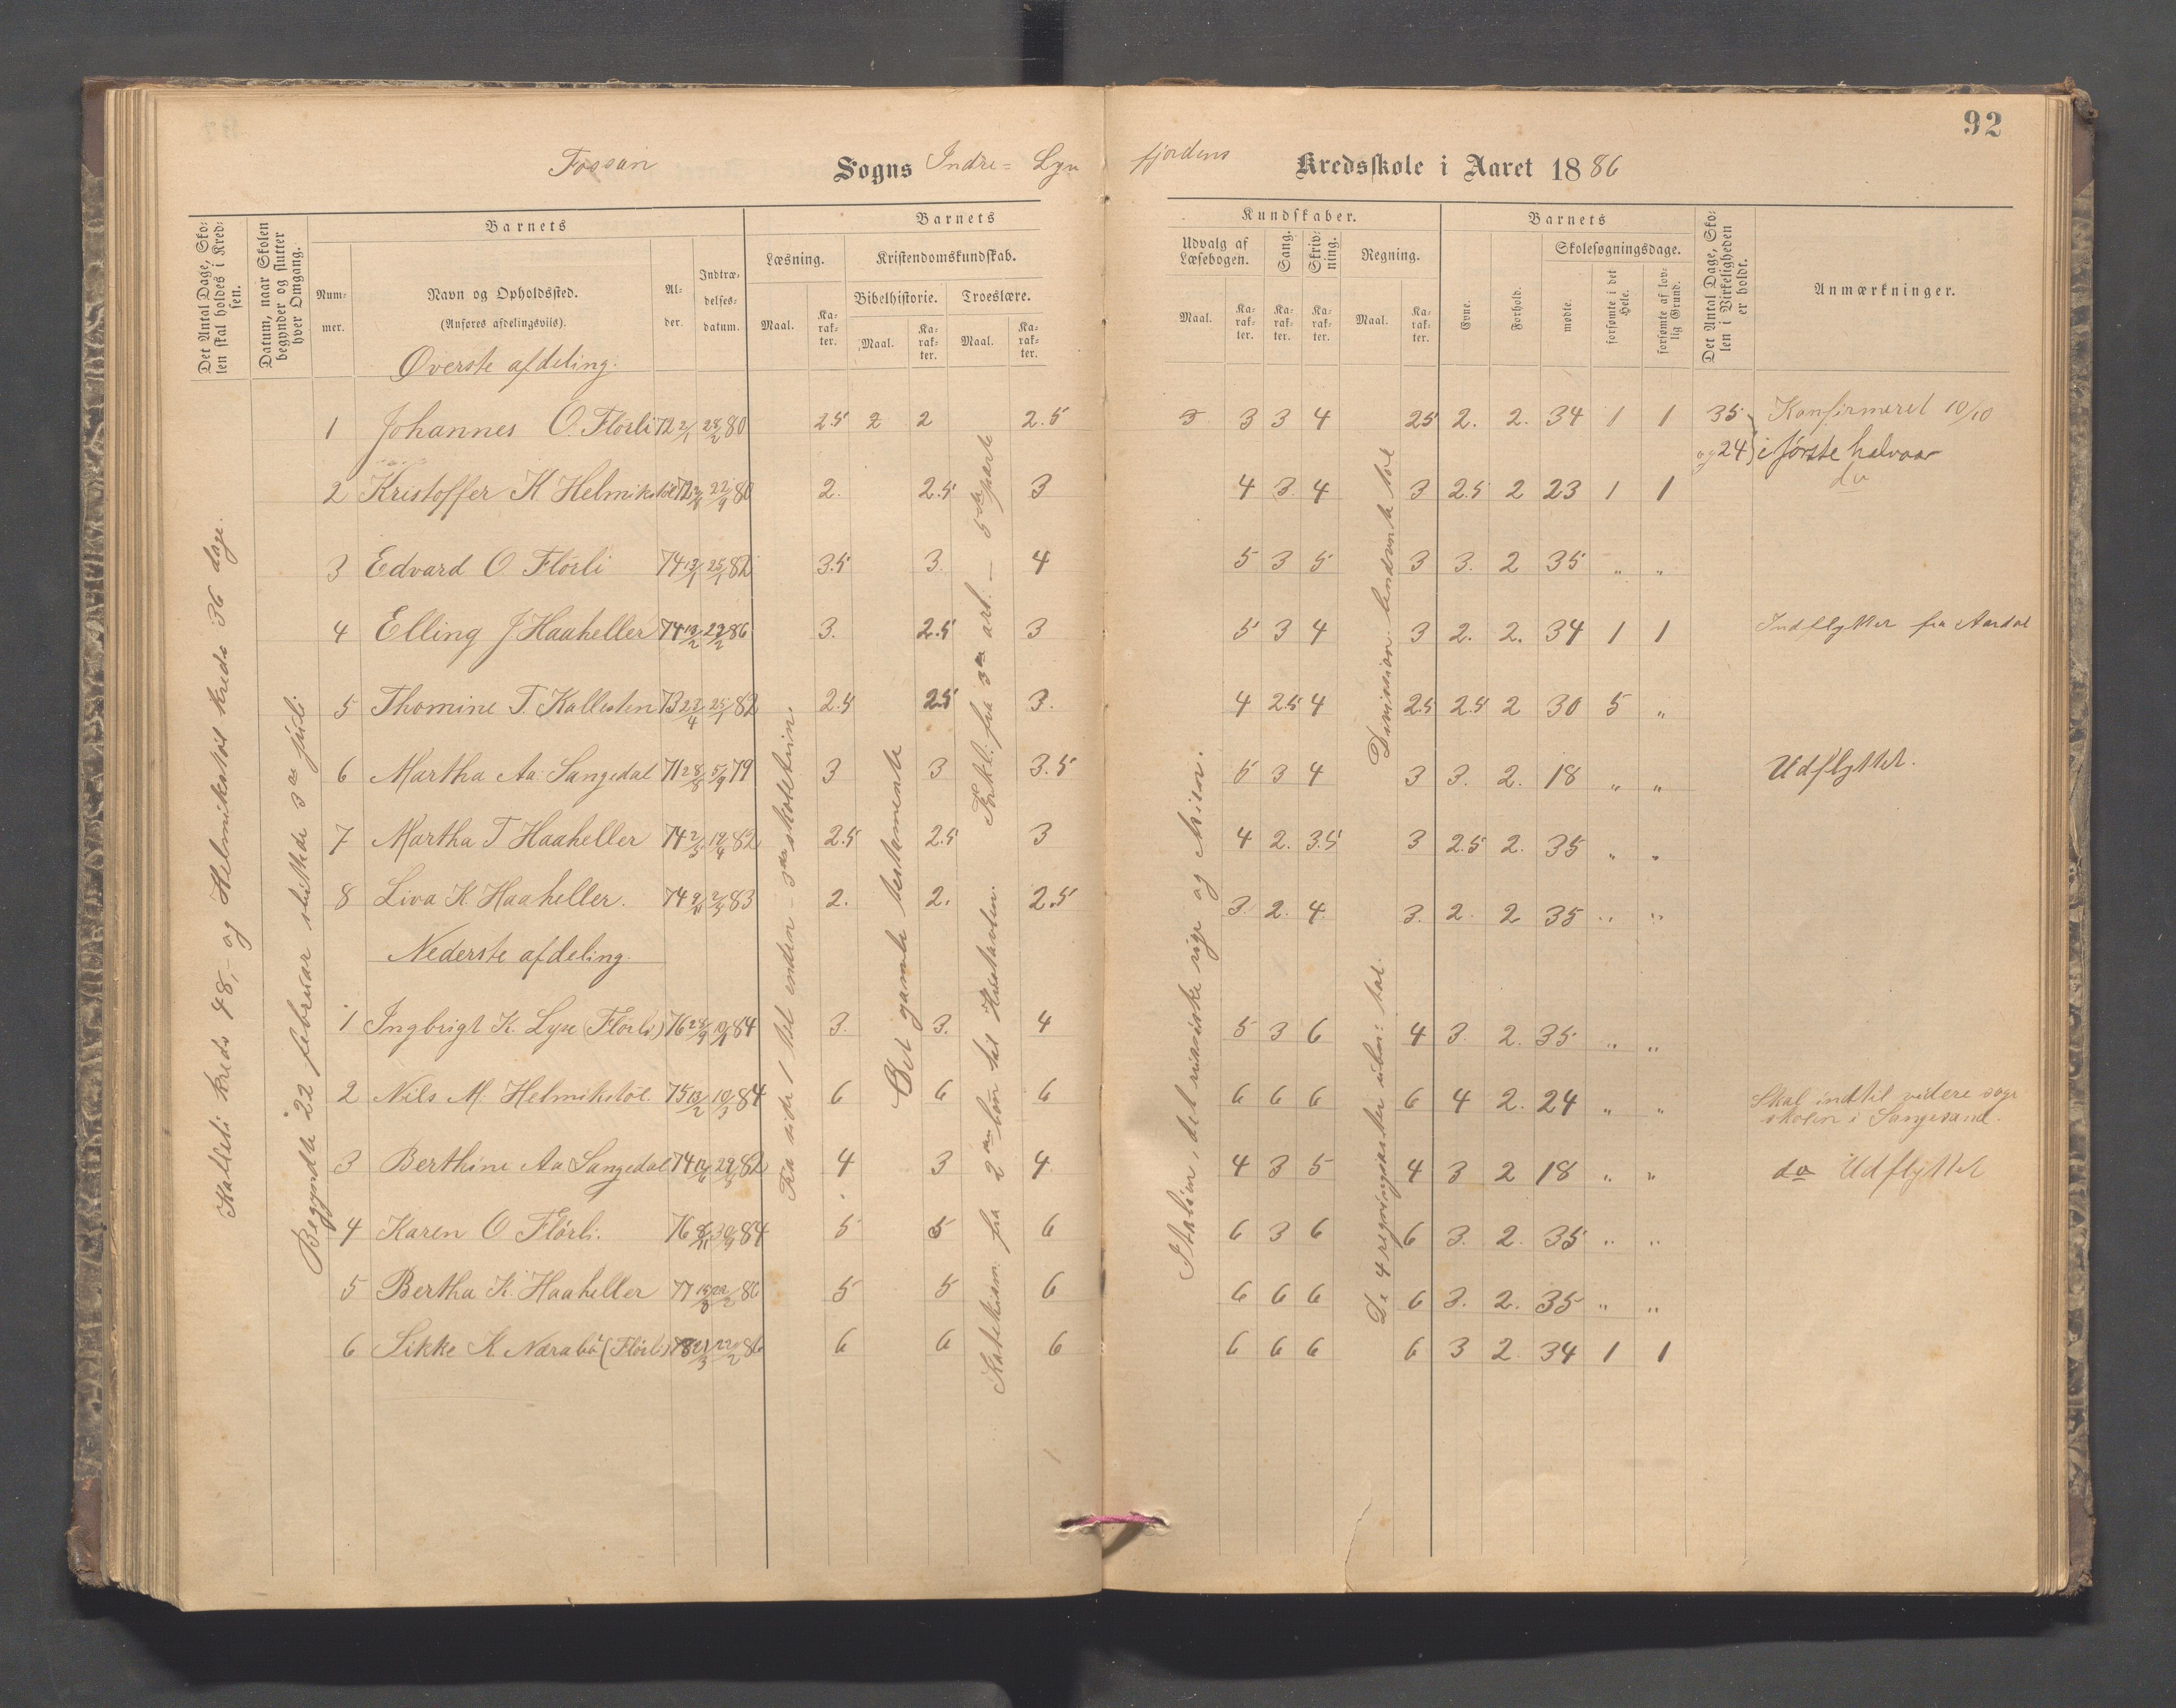 92
Fossan Sogns Indre= Lyse
fjordens Kredsskole i Aaret 1886
Det Antal Dage, Skolen skal holdes i Kredsen.
Datum, naar Skolen begynder og slutter hver Omgang.
Barnets
Nummer.
Navn og Opholdssted.
(Anføres afdelingsviis).
Alder.
Indtrædelsesdatum.
Barnets
Læsning.
Maal.
Karakter.
Kristendomskundskab.
Bibelhistorie.
Maal.
Karakter.
Troeslære.
Maal.
Karakter.
Kundskaber.
Udvalg af Læsebogen.
Maal.
Karakter.
Sang.
Karakter.
Skrivning.
Karakter.
Regning.
Maal.
Karakter.
Barnets
Evne.
Forhold.
Skolesøgningsdage.
mødte.
forsømte i det Hele.
forsømte af lovlig Grund.
Det Antal Dage, Skolen i Virkeligheden er holdt.
Anmærkninger.
Øverste afdeling.
1 Johannes O. Flörli 72 2/1 28/2 80 2.5 2 2 2.5 3 3 3 4 2.5 2. 2. 34 1 1 35 Konfirmeret 10/10
og 24 i første halvaar
2 Kristoffer K Helmikstöl 72 22/9 80 2. 2.5 3 4 3 4 3 2.5 2 23 1 1 do
3 Edvard O Flörli 74 13/1 25/1 82 3.5 3. 4 5 3 5 3 3. 2 35 " "
4 Elling J Haaheller 74 19/2 22/2 86 3. 2.5 3 5 3 4 3 2. 2. 34 1 1 Indflyttet fra Aardal
5 Thomine T. Kallesten 73 23/4 25/1 82 2.5 2.5 3. 4 2.5 4 2.5 2.5 2 30 5 "
6 Martha Aa. Sangedal 71 28/8 5/9 79 3 3 3.5 5 3 4 3 3. 2. 18 " " Udflyttet.
7 Martha T Haaheller 74 2/3 19/4 82 2.5 2.5 3 4 2. 3.5 3 2.5 2. 35 " "
8 Liva K Haaheller. 74 83 2. 2. 2.5 3. 2. 4. 3. 2. 2 35 " "
Nederste afdeling.
1 Ingbrigt K. Lyse (Flörli) 76 84 3. 3. 4 5 3 6 4 3. 2. 35 " "
2 Nils M. Helmikstöl. 75 13/2 10/3 84 6 6 6 6 6 6 6 4 2. 24 " " Skal indtil videre søge
skolen i Sangesand.
3 Berthine Aa Sangedal 74 82 4 3 4 4 3 5 4 3 2 18 " " do Udflyttet
4 Karen O Flörli. 76 84 5 5 6 6 3 6 6 3. 2. 35 " "
5 Bertha K. Haaheller 77 86 5 5 6 6 6 6 6 3. 2. 35 " "
6 Sikke K. Nærabö (Flörli) 78 22/2 86 6 6 6 6 6 6 6 3 2. 34 1 1
Kalleli kreds 48,- og Helmikstöl kreds 36 dage.
Begyndte 22 februar sluttede 3 juli
Fra side 1 til enden - 3die skoletrin.
Det gamle testamente
Katekism. fra 2den bön til Hustavlen. Forkl: fra 3die art. - 5te part
Italien, det russiske rige og Asien.
De 4 regningsarter uben: tal.
Division benævnte tal